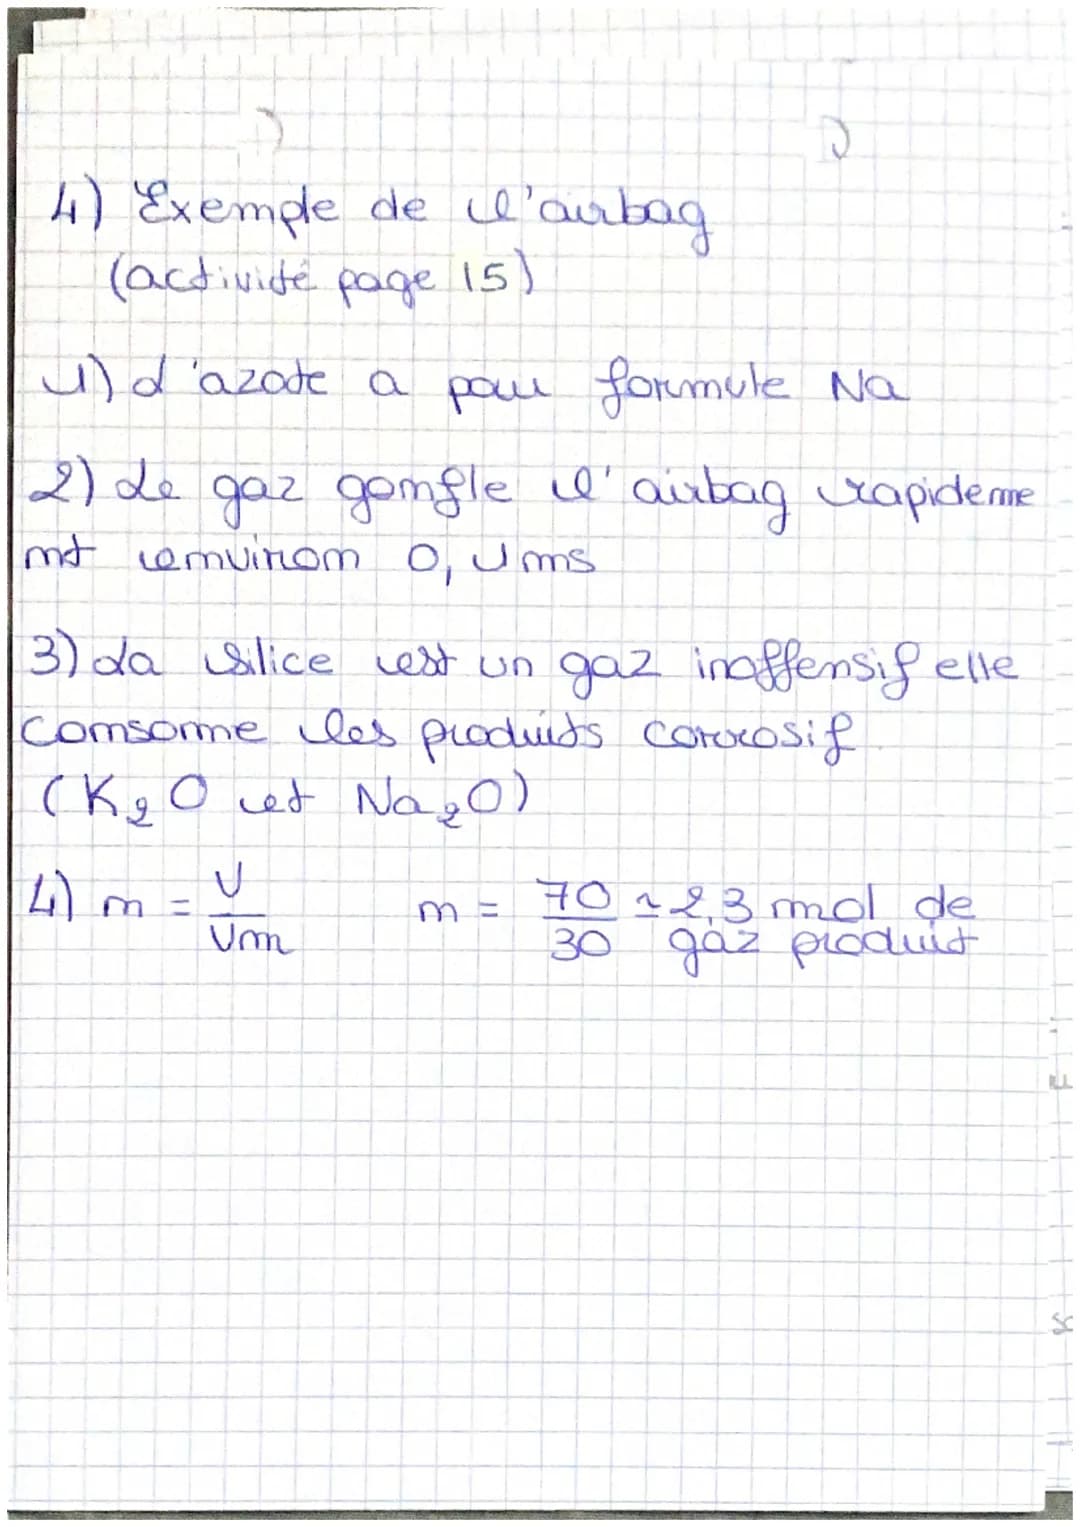 4) Exemple de l'airbag
(activité page 15)
1) L'azote a pour formule Na
2) Le gaz gonfle l'airbag rapideme
nt environ 0,1ms
3) La silice est un gaz inoffensif elle
consomme les produits corrosif
(K2O et Na2O)
4) n = V/Vm n = 70/30 ≈ 2,3 mol de
gaz produit